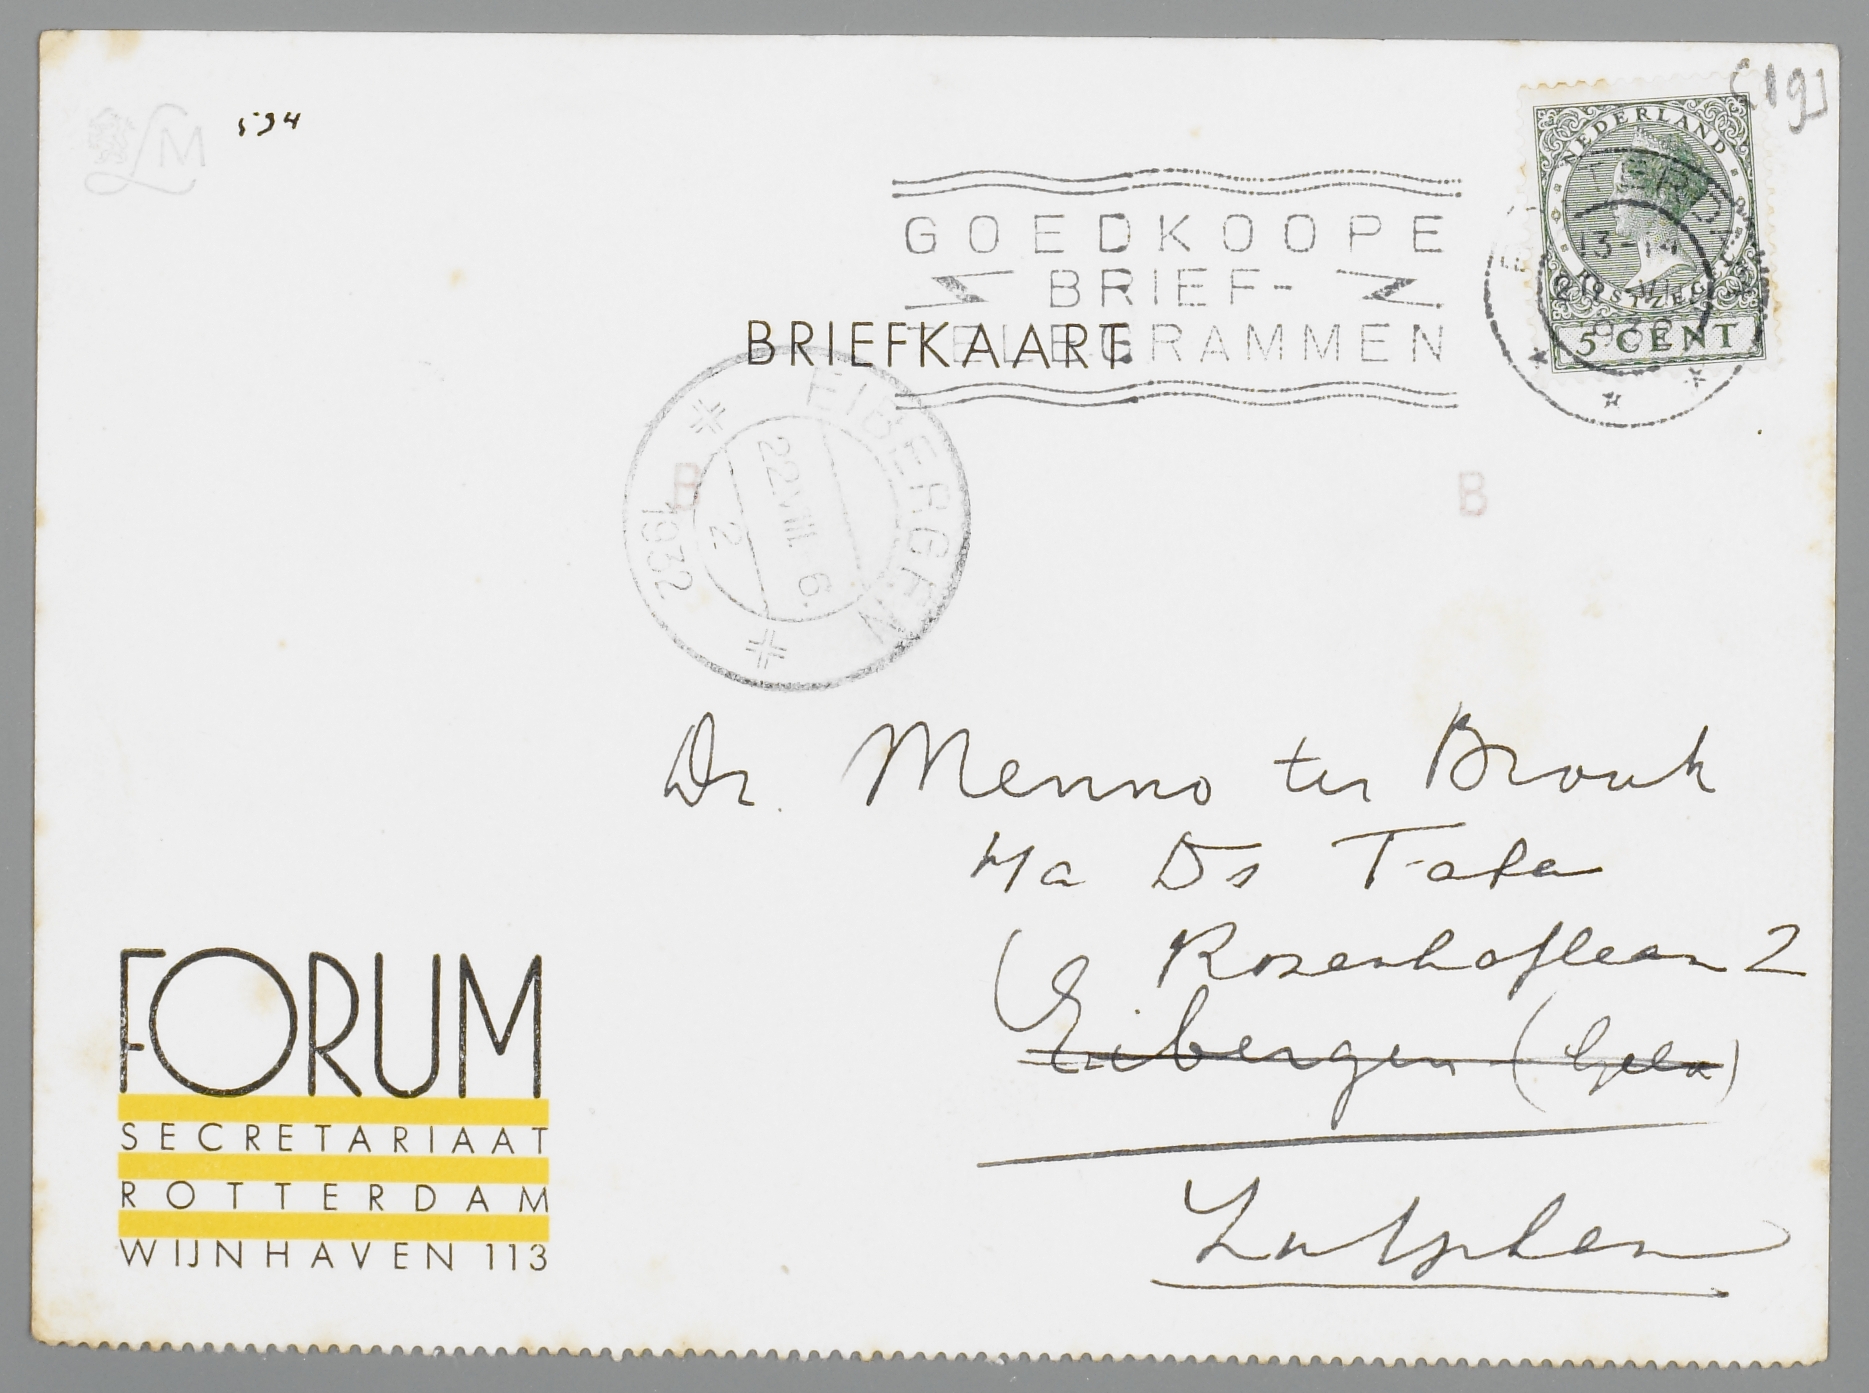 LM 594
[19]
NEDERLAND
POSTZEGEL
5 CENT
13-14
GOEDKOOPE
BRIEF-
TELEGRAMMEN
BRIEFKAART
EIBERGEN
22 VIII 6.
2
1932
B
B
Dr. Menno ter Braak
Ds
Rozenhoflaan 2
Eibergen (Geld)
Zutphen
FORUM
SECRETARIAAT
ROTTERDAM
WIJNHAVEN 113